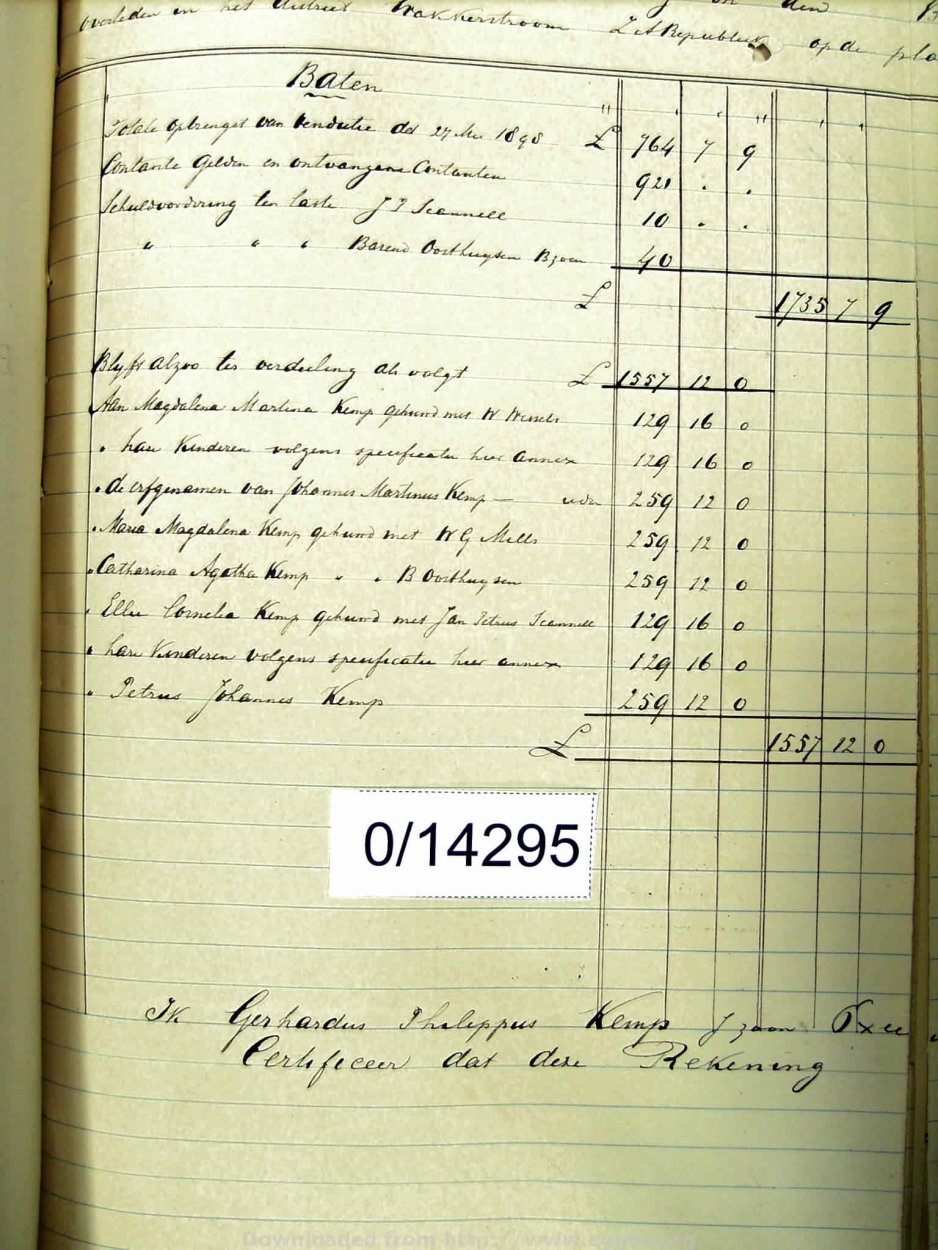 overleden in het district Wakkerstroom Z A Republiek op de pla
Baten
Totale opbrengst van Vendutie dd 27 Mei 1898 £ 764 7 9
Contante Gelden en ontvangene Contanten 921 . .
Schuldvordering ten laste J P Scannell 10 . .
" " " Barend Oosthuysen Bzoon 40
£ 1735 7 9
Blyft alzoo ter verdeeling als volgt £ 1557 12 0
Aan Magdalena Martina Kemp gehuwd met W Wessels 129 16 0
" hare Kinderen volgens specificatie hier annex 129 16 0
" de erfgenamen van Johannes Martinus Kemp — 259 12 0
" Maria Magdalena Kemp gehuwd met W G Mills 259 12 0
" Catharina Agatha Kemp " " B Oosthuysen 259 12 0
" Ellie Cornelia Kemp gehuwd met Jan Petrus Scannell 129 16 0
" hare Kinderen volgens specificatie hier annex 129 16 0
" Petrus Johannes Kemp 259 12 0
£ 1557 12 0
0/14295
Ik Gerhardus Philippus Kemp J zoon Exe
Certificeer dat deze Rekening
Downloaded from http://www.